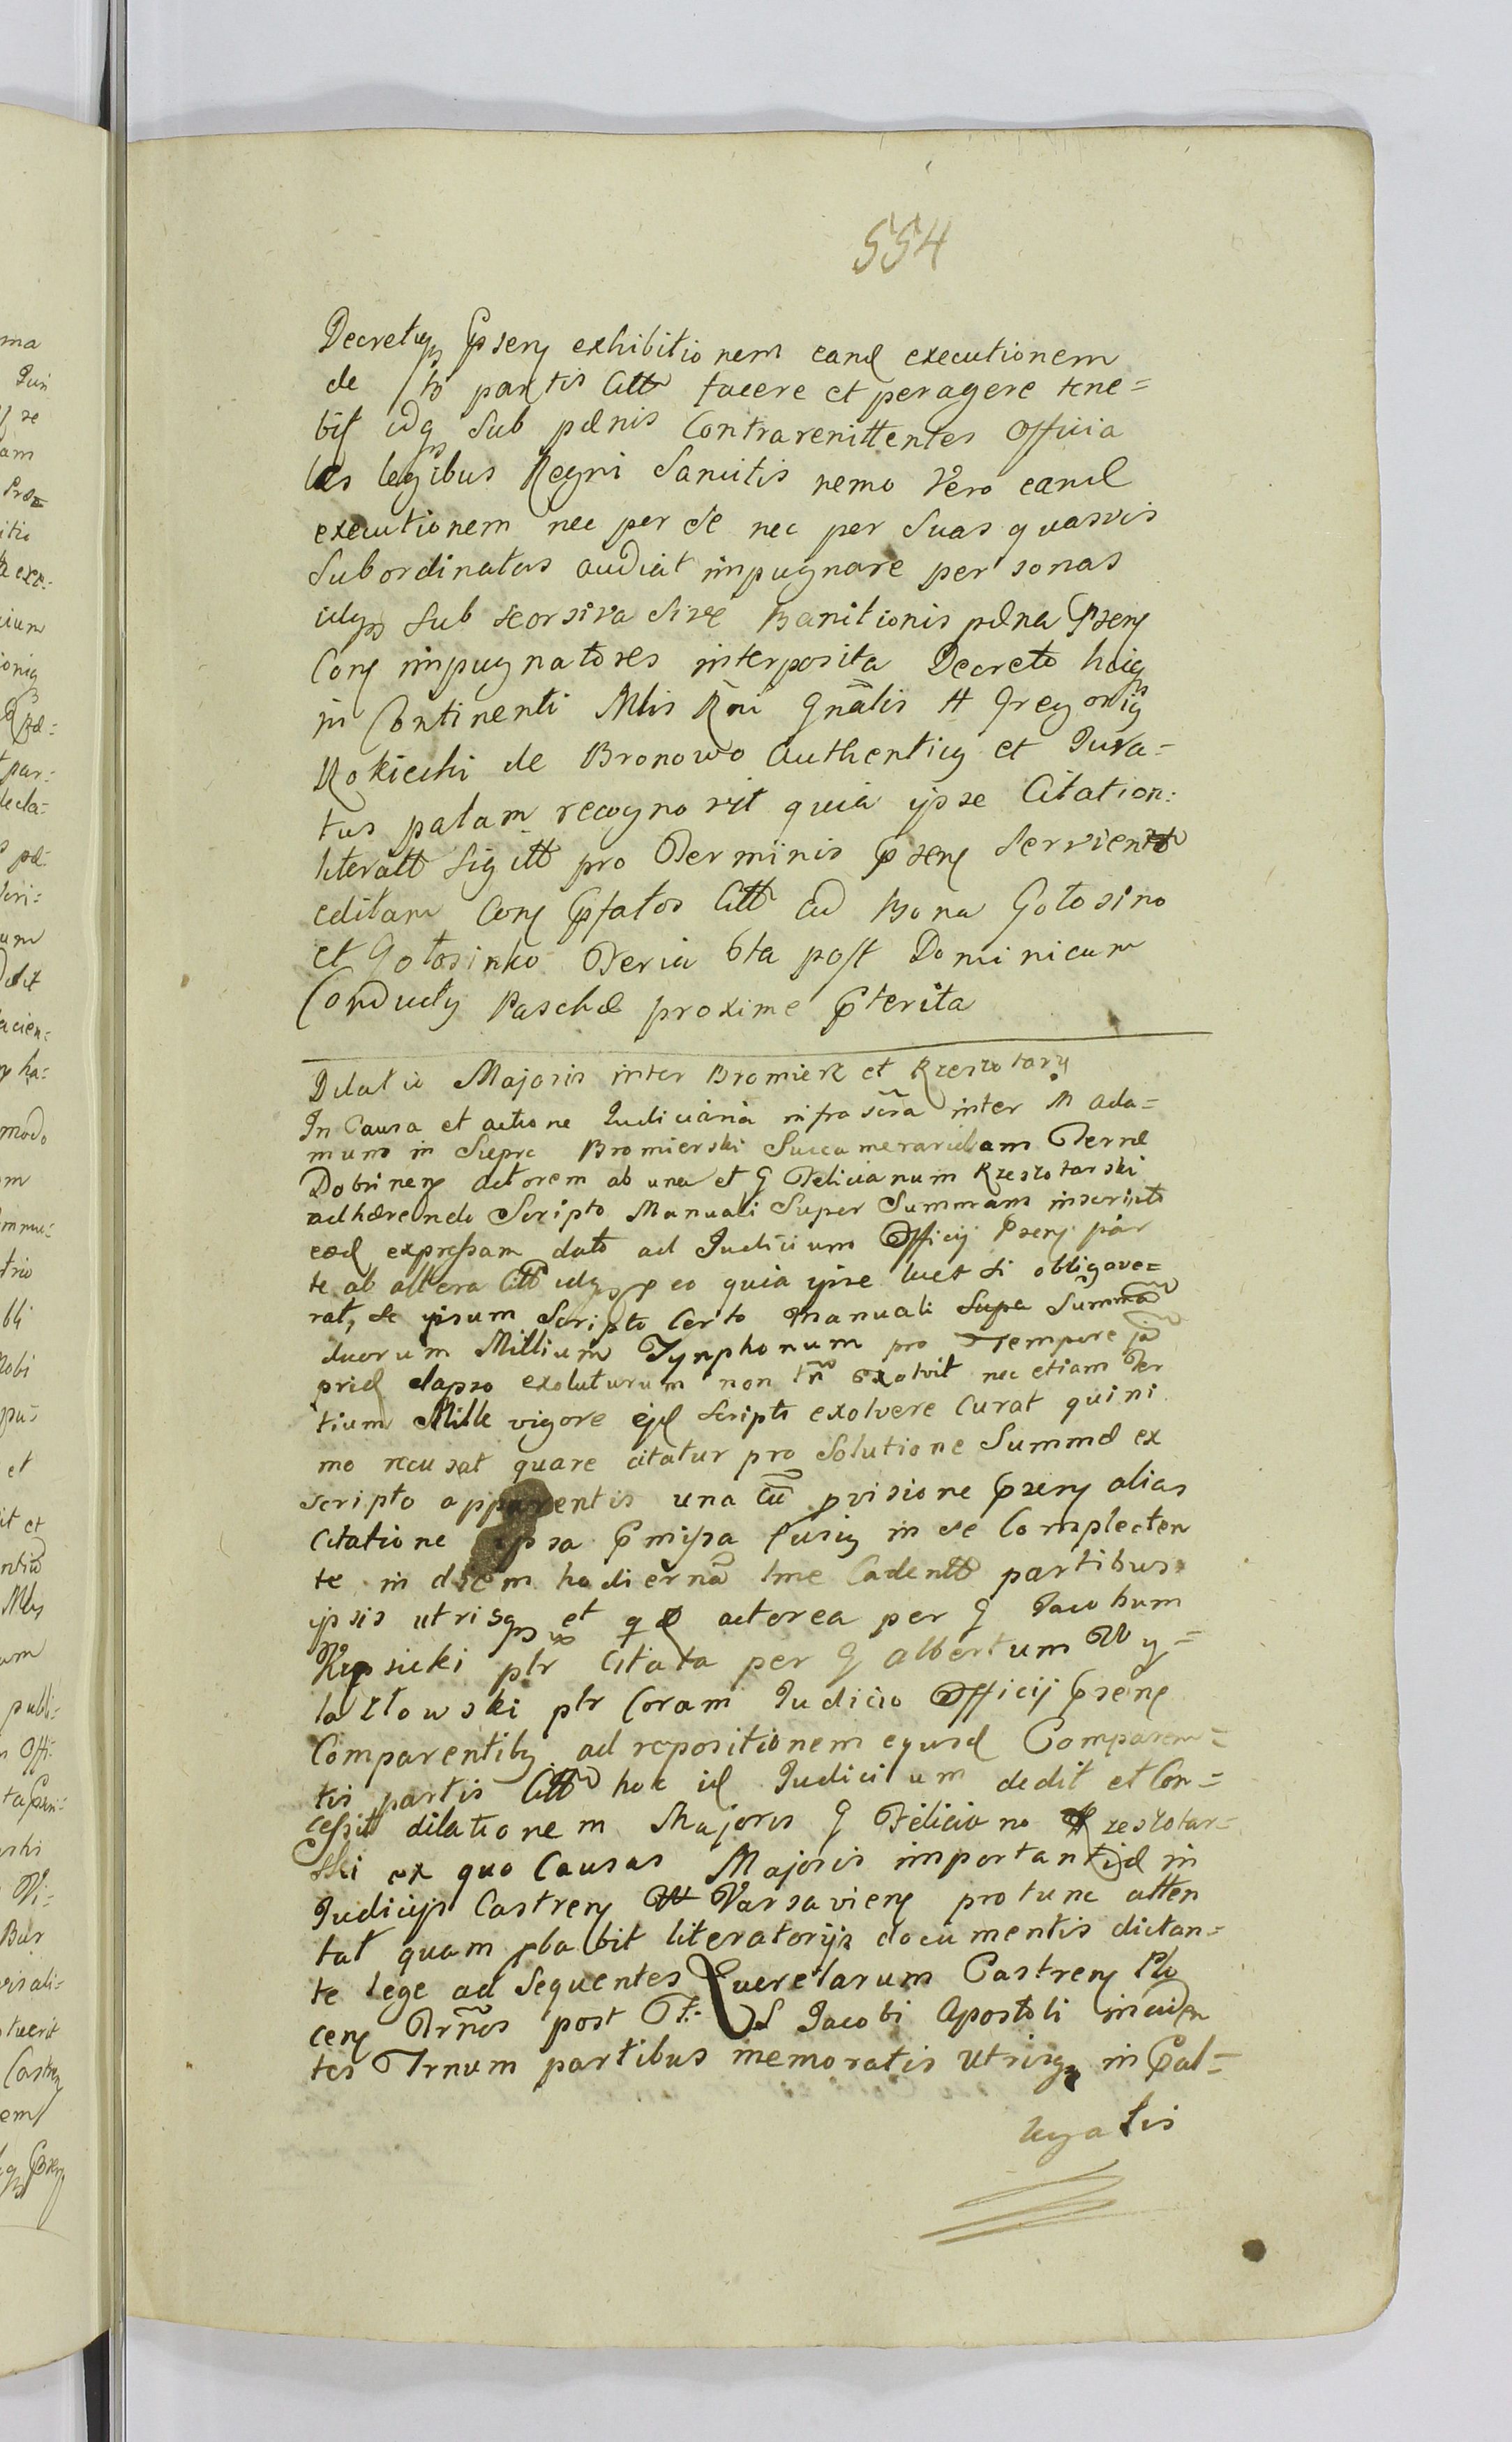 554
Decretiq psens exhibitionem eand executionem
de to partis Citt facere et peragere tene=
bit idq sub pænis Contrarenittentes Officia
les legibus Regni Sancitis nemo Vero eand
executionem nec per se nec per suas quasvis
Subordinatas audiat impugnare personas
idq sub seorsiva sive Banitionis pæna psens
Cons impugnatores interposita Decreto huiq
in Continenti Mlis Rni Gnãlis H Gregoriq
Rokicki de Bronowo Authenticq et Jura=
tus palam recognovit quia ipse Citation:
literatt Sigitt pro Terminis psens Servient
editam Cons pfatos Citt ad Bona Gołosino
et Gołosinko Feria 6ta post Dominicam
Conductq Paschæ proxime pterita
Dilatio Majoris inter Bromiersk et Rzeszotars
In Causa et actione Judiciaria infrascra inter M Ada=
mum in Sieprc Bromierski Succameraridam Terræ
Dobrinens actorem ab una et G Felicianum Rzeszotarski
adhærendo Scripto Manuali Super Summam inscripto
eod expressam dato ad Judicium Officij psens par
te ab altera Citt idq p eo quia ipse licet si obligave=
rat, se ipsum Scripto Certo manuali Supa Summã
duorum Millium Tynphonum pro Tempore jã
prid elapso exoluturum non tñ exolvit nec etiam Ter
tium Mille vigore ejd scripti exolvere Curat quini
mo recusat quare citatur pro Solutione Summæ ex
scripto apparentis una cũ pvisione psens alias
Citatione ipsa pmissa fusiq in se Complecten
te in diem hodiernã tme Cadentt partibus
ipsis utrisq et qd actorea per G Jacobum
Kępsicki ptr Citata per G Albertum Wy=
laztowski ptr Coram Judicio Officij psens
Comparentibq ad repositionem ejusd Comparen=
tis partis Citt hoc id Judicium dedit et Con=
cessit dilationem Majoris G Feliciano Rzeszotar=
ski ex quo Causas Majoris importantiæ in
Judicijs Castrens Varsaviens protunc atten
tat quam pbabit literatorijs documentis dictan=
te lege ad Sequentes Querelarum Castrens Plo
cens Trños post F: S Jacobi Apostoli inciden
tes Trnum partibus memoratis Utrisq in pal=
legatis